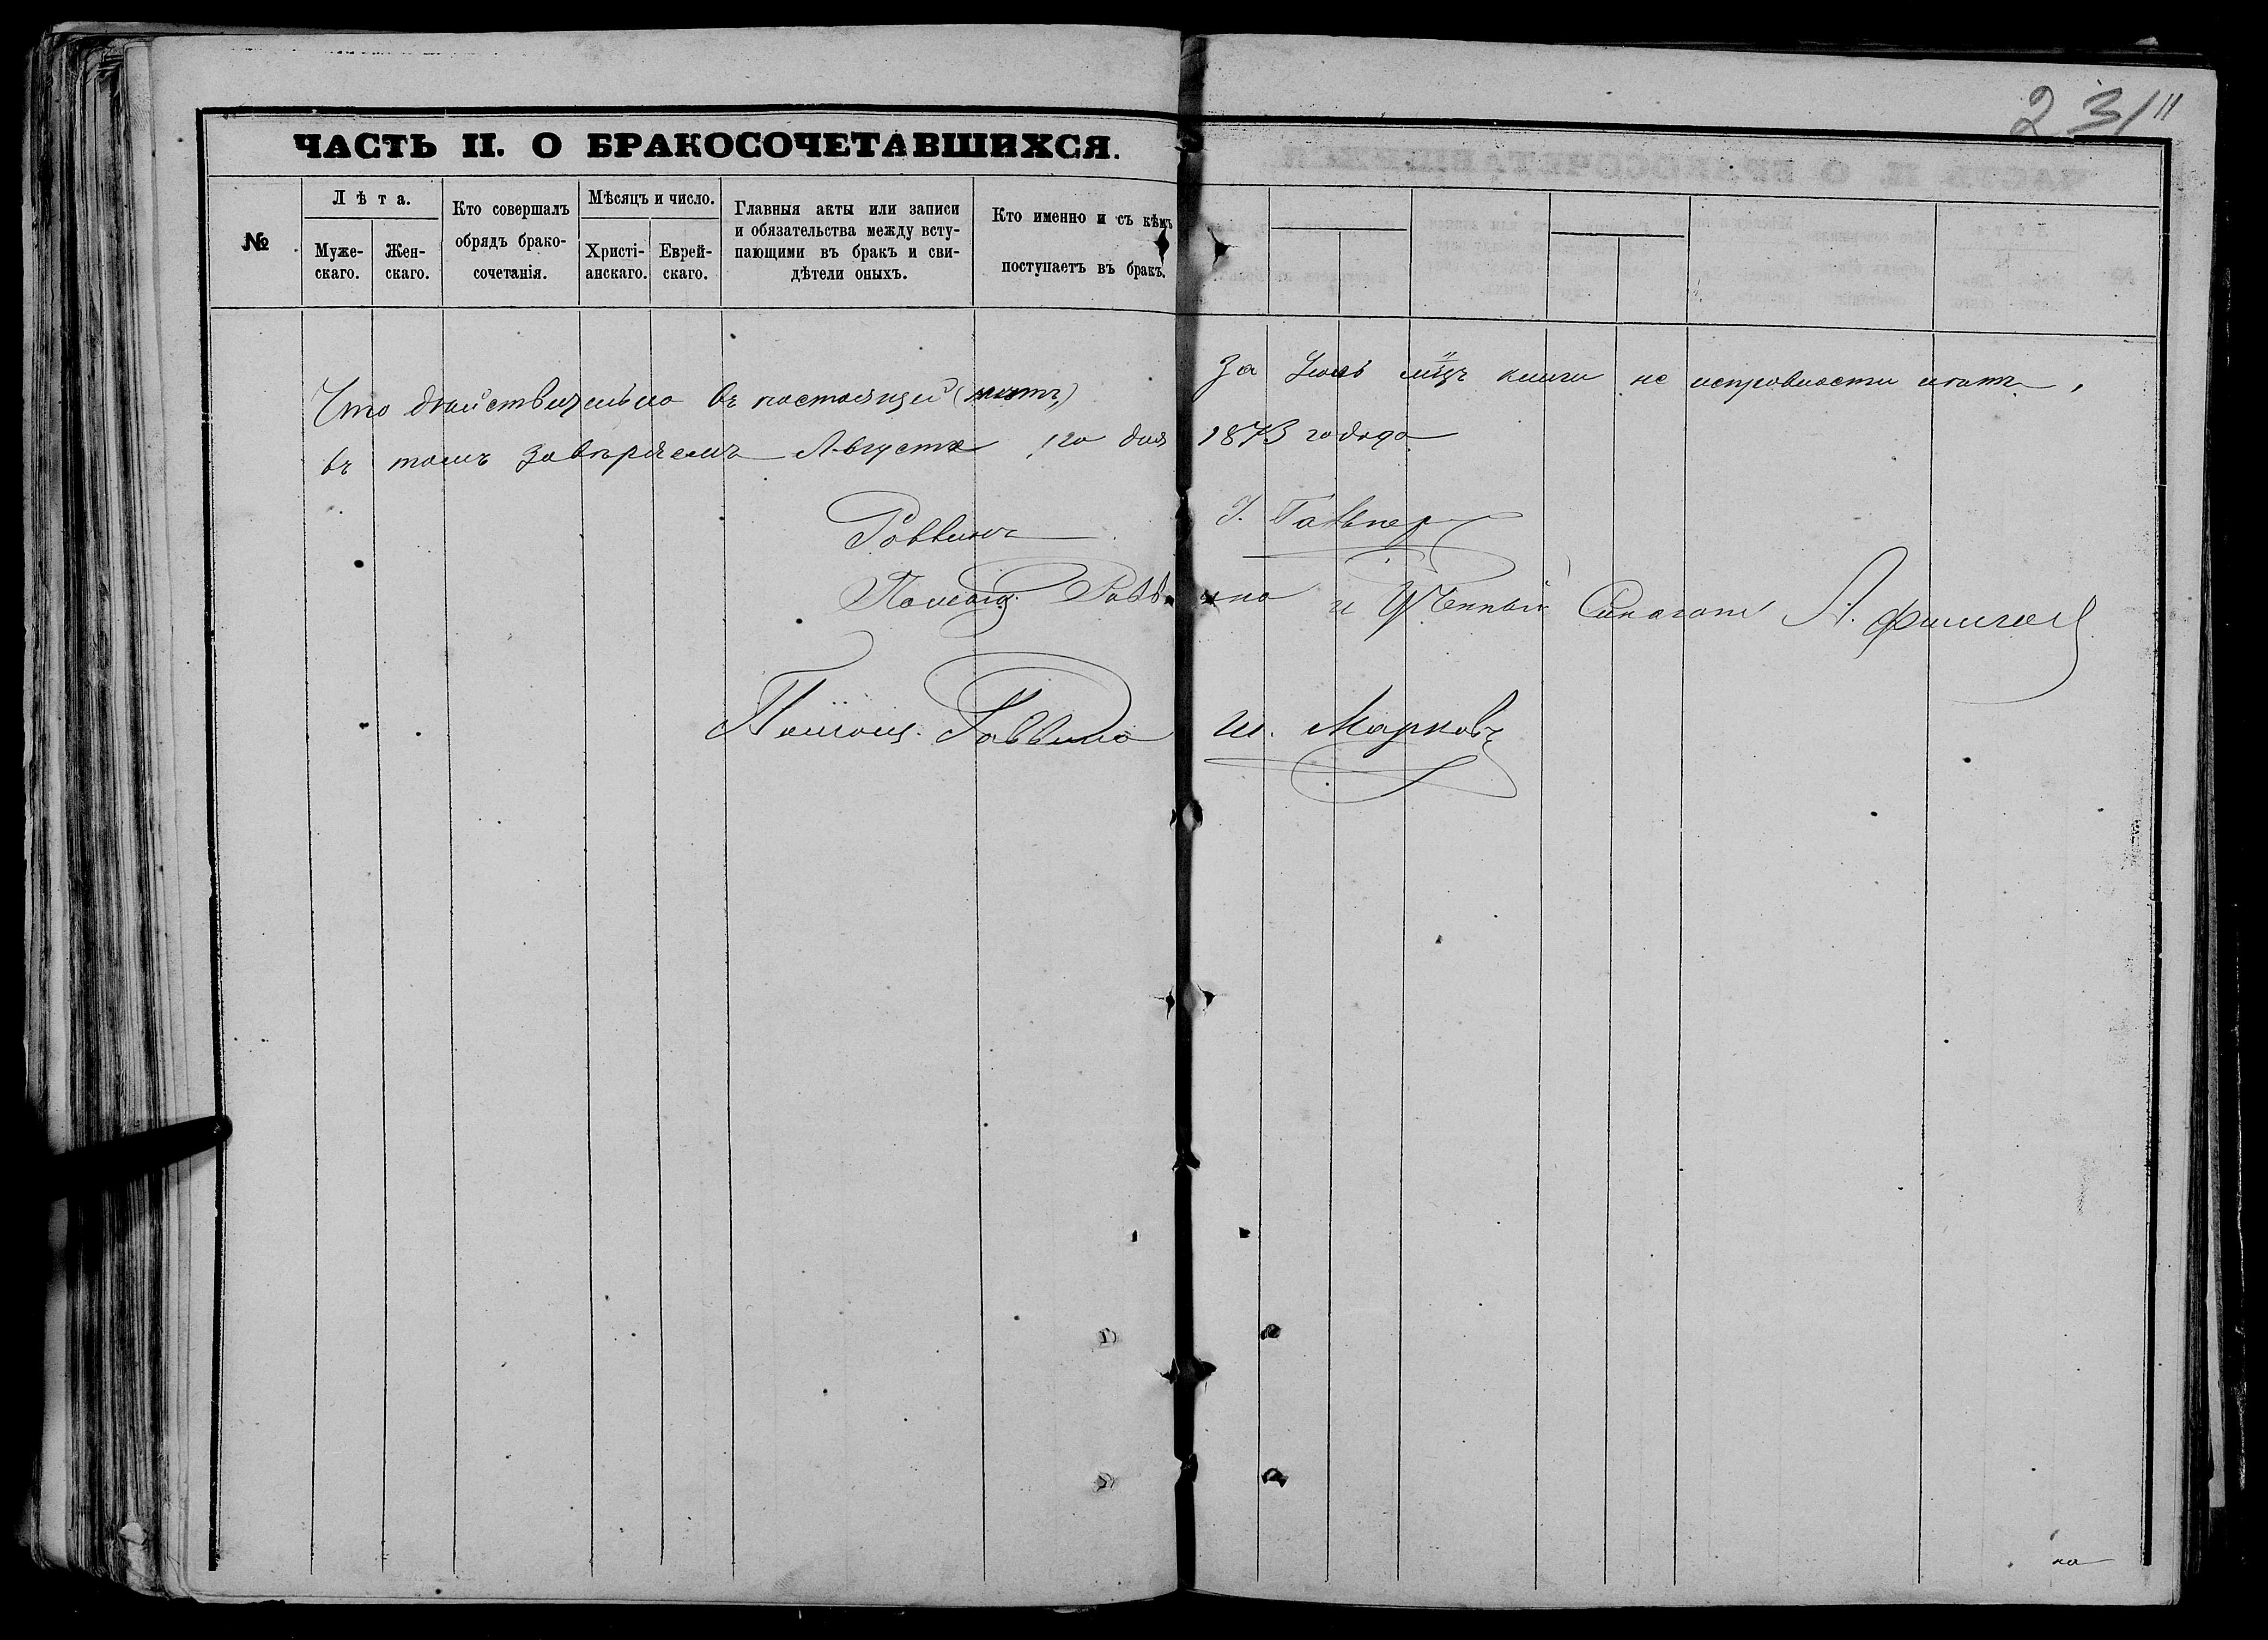 231 11
ЧАСТЬ II. О БРАКОСОЧЕТАВШИХСЯ.
№
Лѣта.
Муже-
скаго.
Жен-
скаго.
Кто совершалъ
обрядъ брако-
сочетанія.
Мѣсяцъ и число.
Христі-
анскаго.
Еврей-
скаго.
Главныя акты или записи
и обязательства между всту-
пающими въ бракъ и сви-
дѣтели оныхъ.
Кто именно и съ кѣмъ
поступаетъ въ бракъ.
Что дѣйствительно въ настоящей за Іюль м̃цъ книги не исправности нѣтъ,
въ томъ завѣряемъ Августа 1го дня 1873 года
Раввинъ
Помощ. Раввина и Ученный Синагоги А.
Помощ. Раввина Ш. Марковъ
на